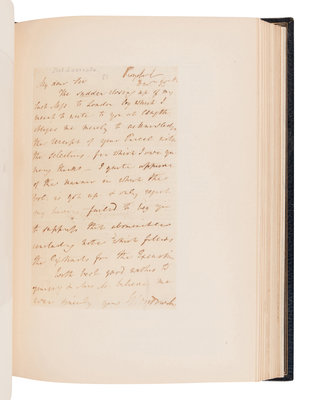 My dear Sir
The sudden closing up of my
last to London by which I
meant to write to you at length
obliges me merely to acknowledge
the receipt of your Parcel with
the selections for which I owe you
many thanks - I quite approve
of the manner in which the
book is got up & only regret
my having failed to beg you
to suppress that
concluding note which follows
the for the
With best good wishes to
yourself & believe me
sincerely yours